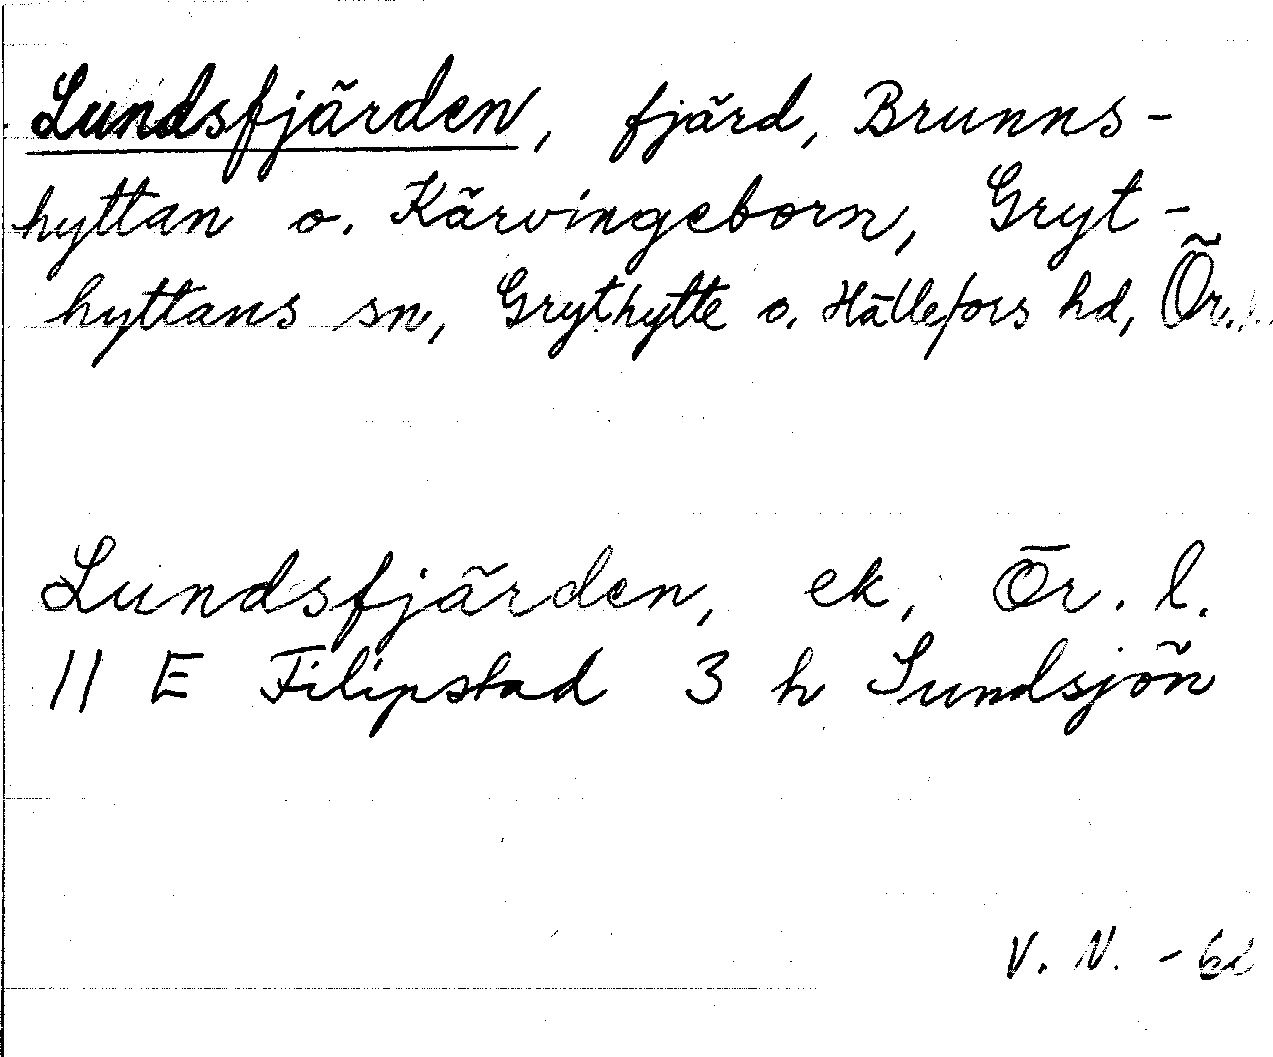 Lundsfjärden, fjärd, Brunns-
hyttan o. Kärvingeborn, Gryt-
hyttans sn, Grythytte o. Hällefors hd, Ör.l.
Lundsfjärden, ek, Ör. l.
11 E Filipstad 3 h Sundsjön
V. N. -